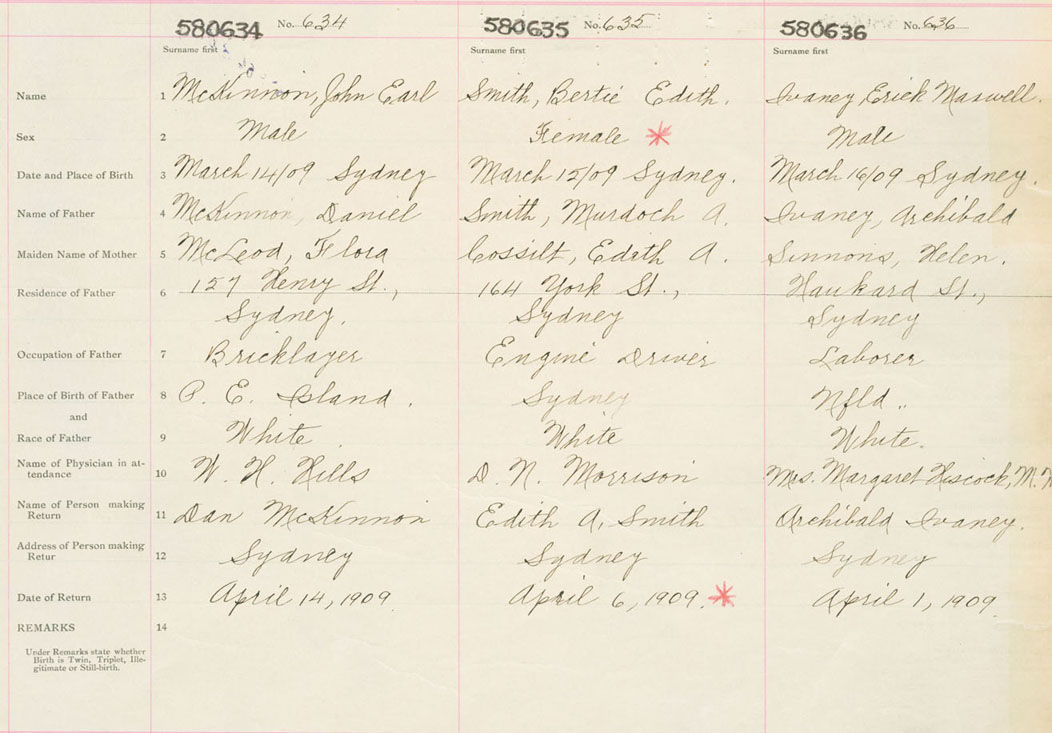 580634 No. 634 580635 No. 635 580636 No. 636
Surname first Surname first Surname first
Name 1 McKinnon, John Earl Smith, Bertie Edith. Ivaney, Erick Maxwell.
Sex 2 Male Female Male
Date and Place of Birth 3 March 14/09 Sydney March 12/09 Sydney. March 16/09 Sydney.
Name of Father 4 McKinnon, Daniel Smith, Murdoch A. Ivaney, Archibald
Maiden Name of Mother 5 McLeod, Flora Cossilt, Edith A. Sinnons, Helen.
Residence of Father 6 127 Henry St., 164 York St., Haukard St.,
Sydney. Sydney Sydney
Occupation of Father 7 Bricklayer Engine Driver Laborer
Place of Birth of Father 8 P. E. Island. Sydney Nfld..
and
Race of Father 9 White. White White.
Name of Physician in at-
tendance 10 W. H. Hills D. N. Morrison Mrs. Margaret Hiscock, M.
Name of Person making
Return 11 Dan McKinnon Edith A. Smith Archibald Ivaney.
Address of Person making
Retur 12 Sydney Sydney Sydney
Date of Return 13 April 14, 1909 April 6, 1909. April 1, 1909.
REMARKS 14
Under Remarks state whether
Birth is Twin, Triplet, Ille-
gitimate or Still-birth.